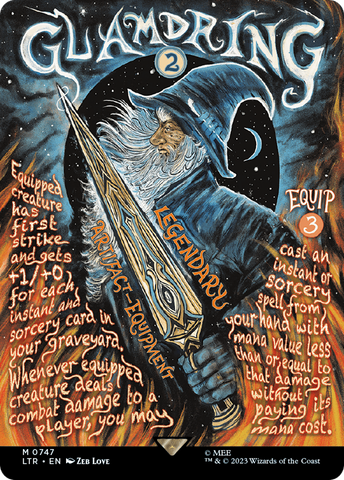 GLAMDRING
2
LEGENDARY
ARTIFACT–EQUIPMENT
Equipped
creature
has
first
strike
and gets
+1/+0
for each
instant and
sorcery card in
your graveyard.
Whenever equipped
creature deals
combat damage to a
player, you may
cast an
instant or
sorcery
spell from
your hand with
mana value less
than or equal to
that damage
without
paying its
mana cost.
EQUIP
3
M 0747
LTR • EN Zeb Love
© MEE
™ & © 2023 Wizards of the Coast